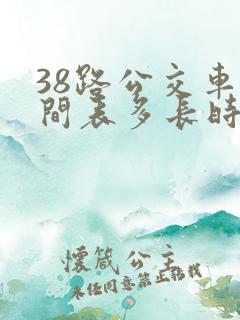 38路公交車
間表多長時
懷箴公主
未经同意禁止转载